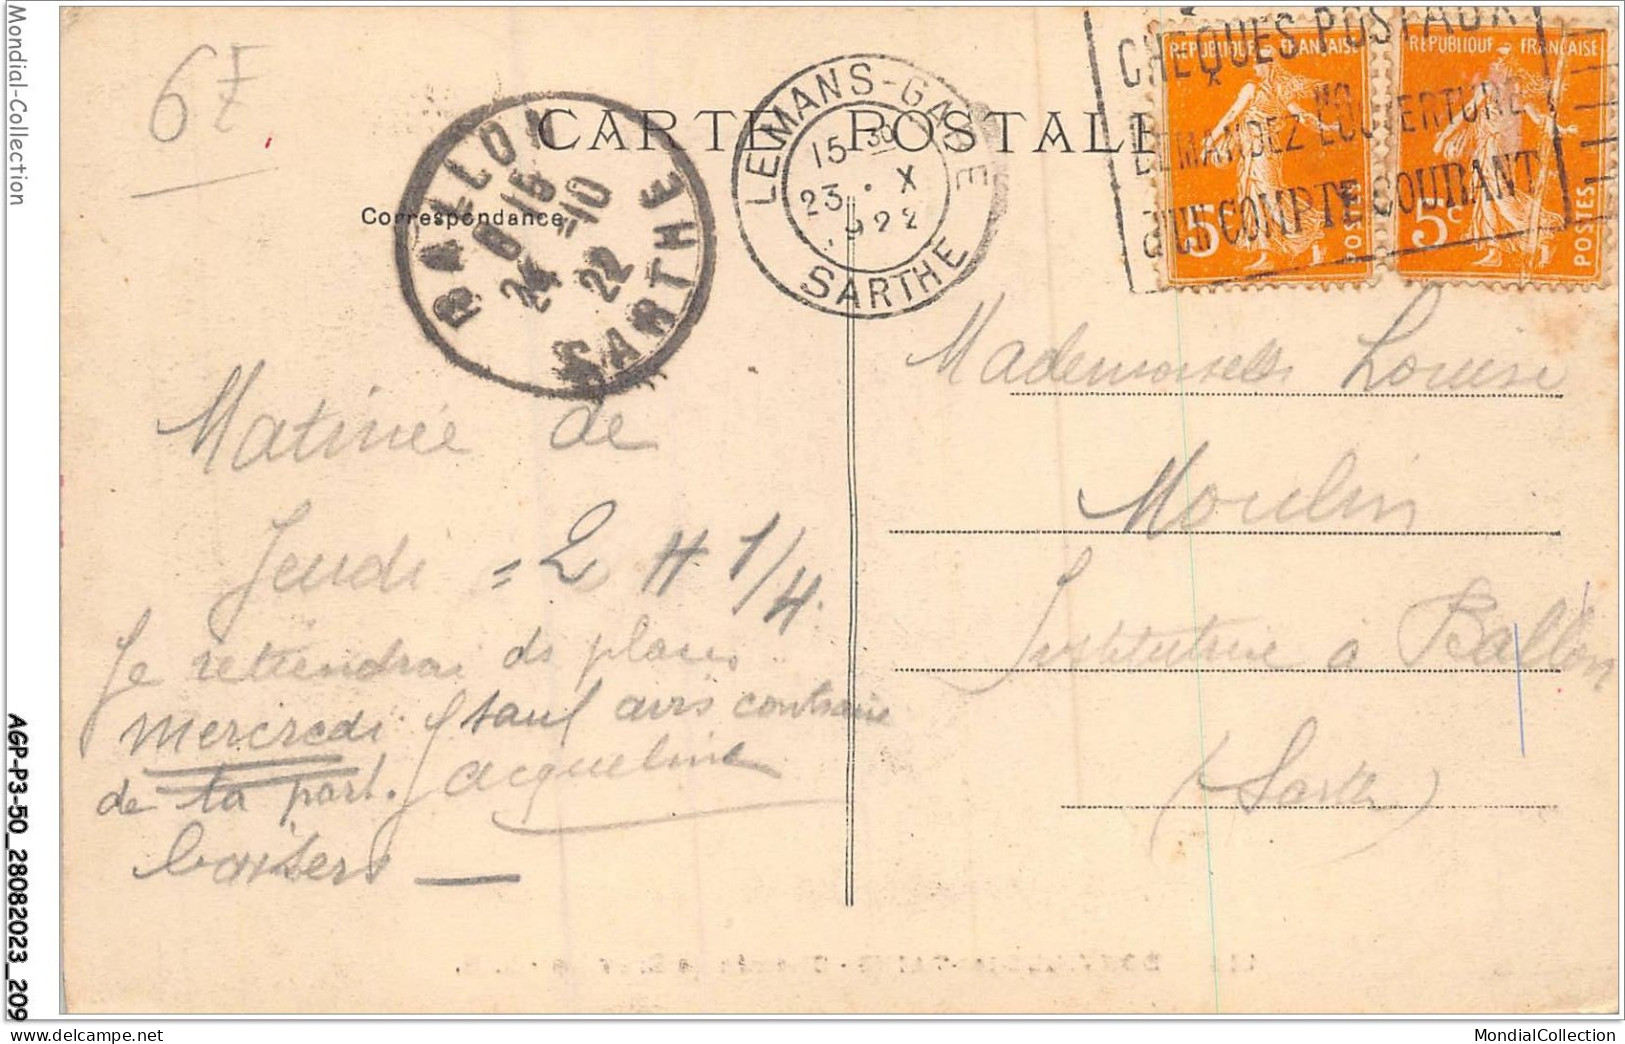 Mondial-Collection
6F
CARTE POSTALE
Correspondance
BALLON
8 15
24 -10
22
SARTHE
LE MANS-GARE
15 30
23 · X
1922
SARTHE
CHÈQUES POSTAUX
DEMANDEZ L'OUVERTURE
d'un COMPTE COURANT
REPUBLIQUE FRANÇAISE
5c
POSTES
REPUBLIQUE FRANÇAISE
5c
POSTES
Matinée de
Jeudi = 2 H 1/4.
Je retiendrai ds places
mercredi sauf avis contraire
de ta part. Jacqueline
baisers —
Mademoiselle Louise
Moulin
Institutrice à Ballon
(Sarthe)
AGP-P3-50_28082023_209
delcampe.net
MondialCollection